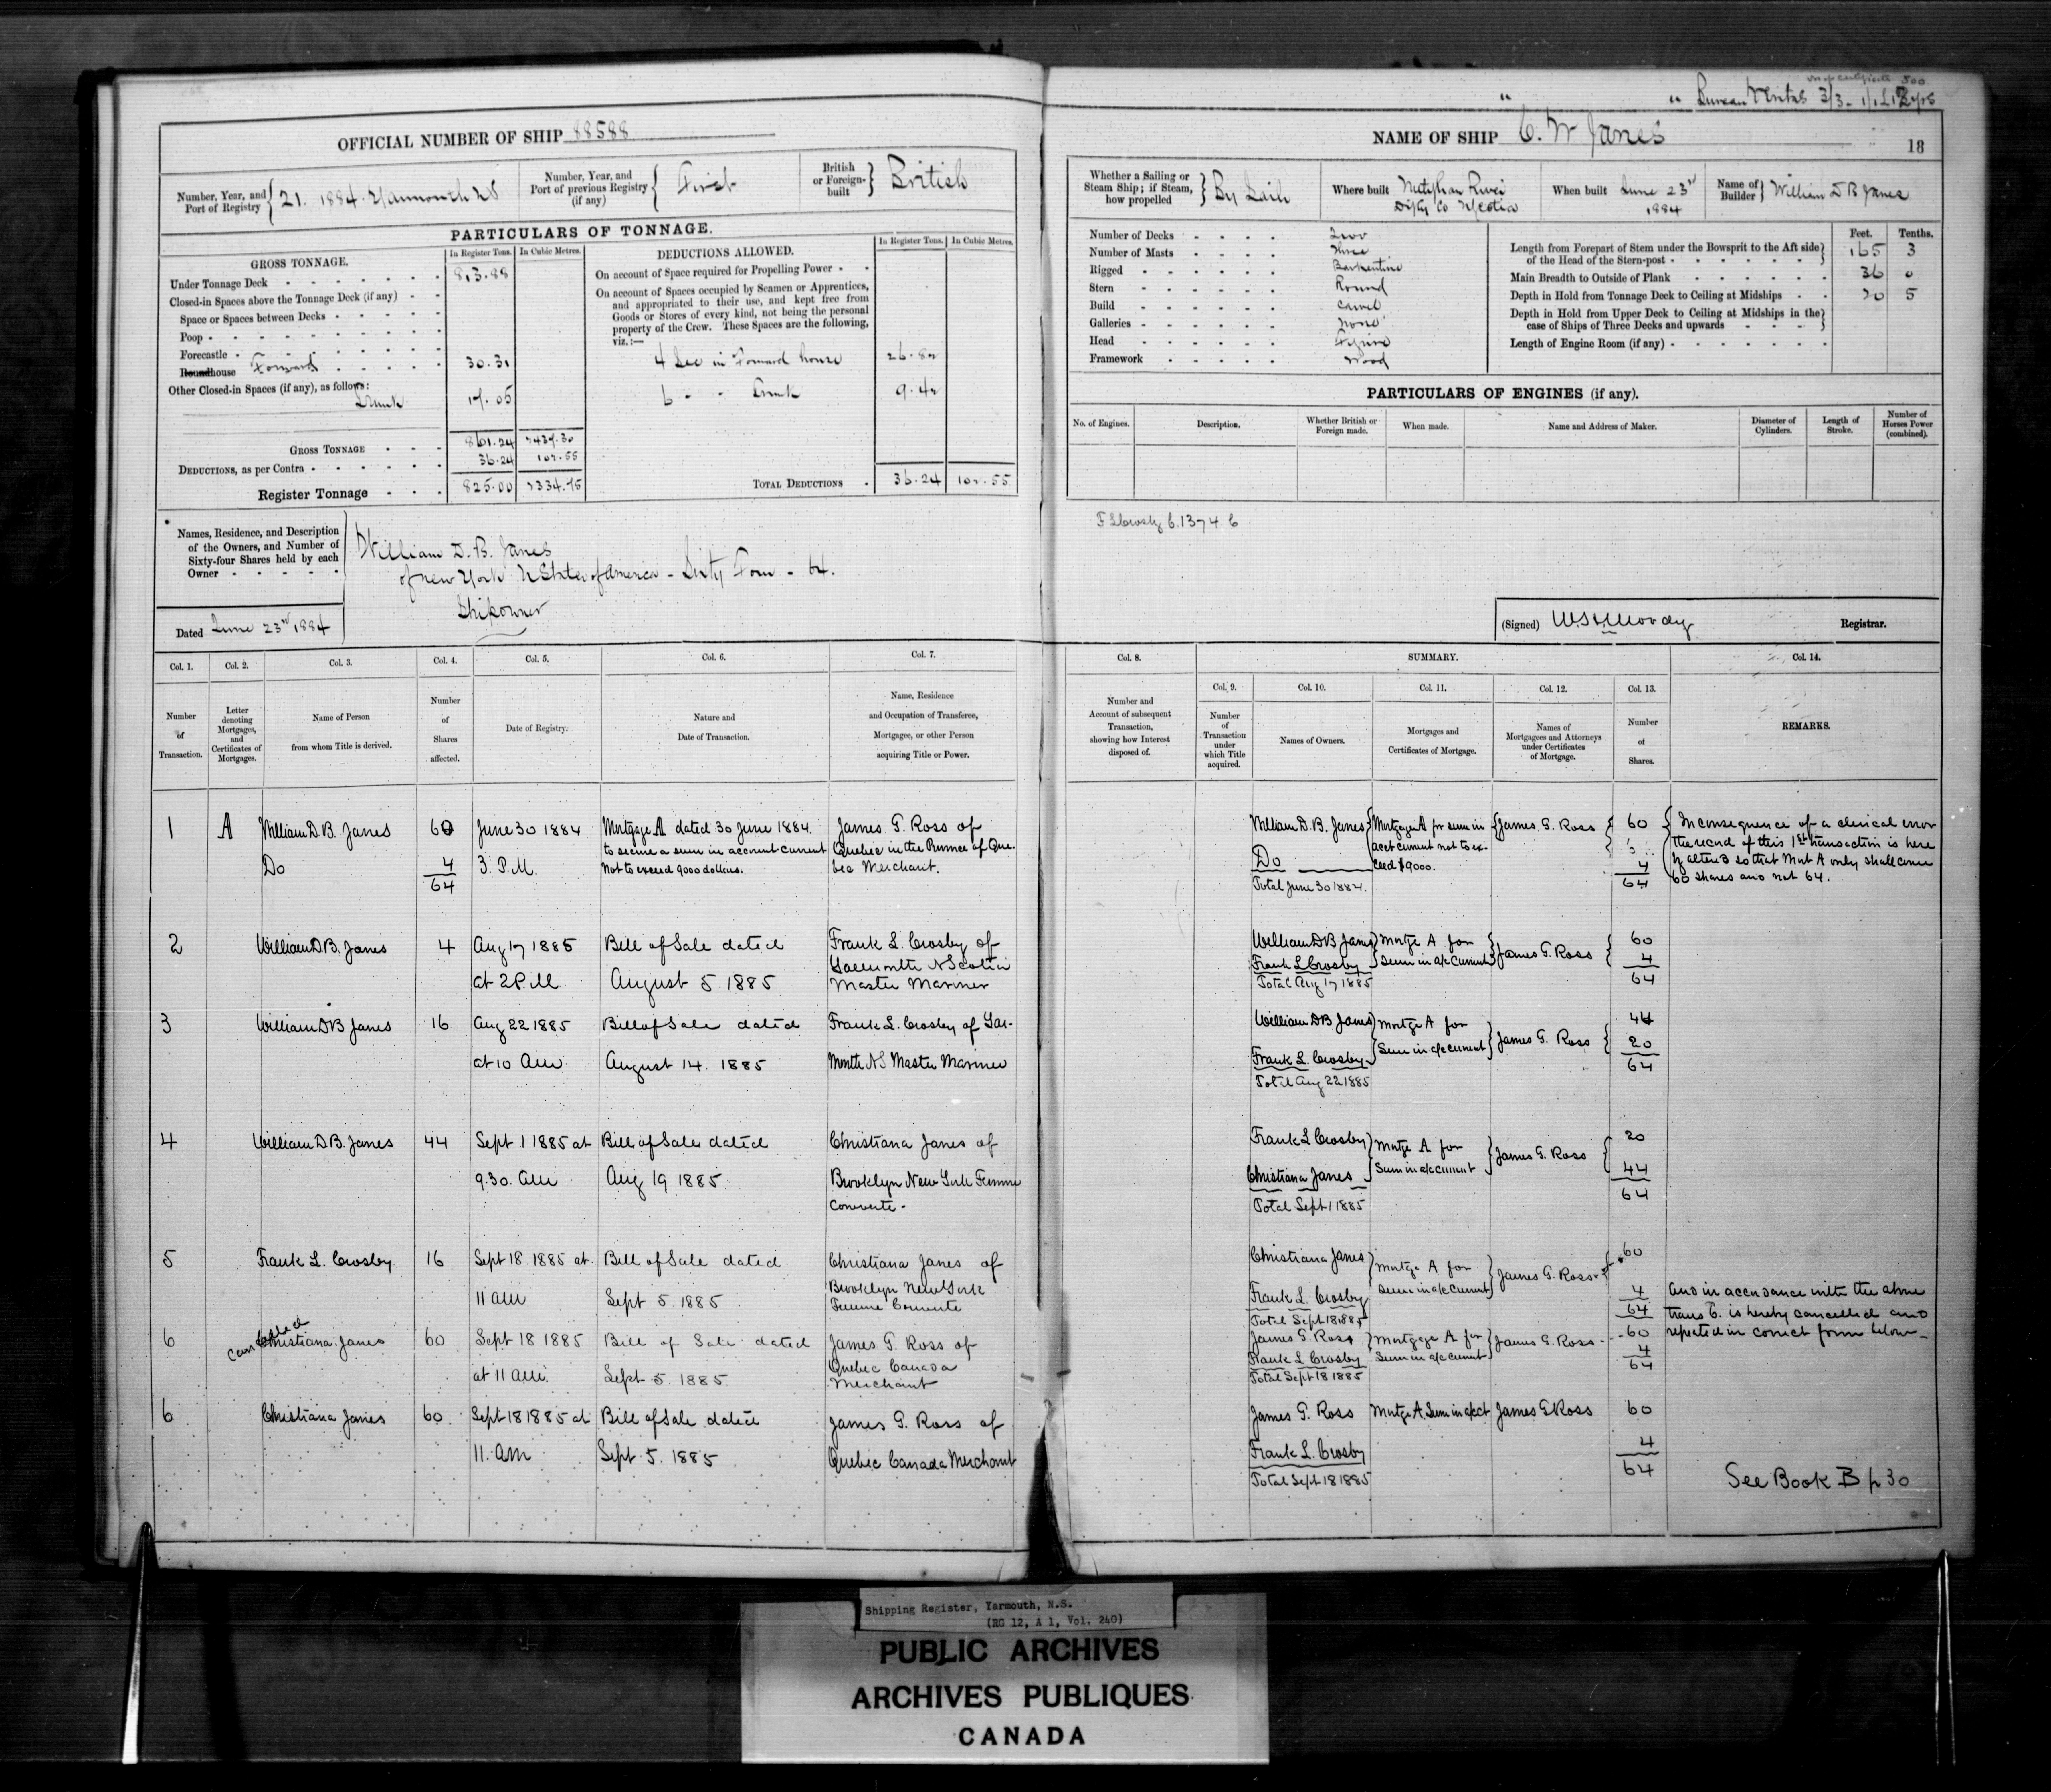 OFFICIAL NUMBER OF SHIP 88588
Number, Year, and
Port of Registry
21. 1884. Yarmouth NS
Number, Year, and
Port of previous Registry
(if any)
First
British
or Foreign-
built
British
PARTICULARS OF TONNAGE.
GROSS TONNAGE.
In Register Tons.
In Cubic Metres.
Under Tonnage Deck 813.88
Closed-in Spaces above the Tonnage Deck (if any)
Space or Spaces between Decks
Poop
Forecastle
Roundhouse Forward 30.31
Other Closed-in Spaces (if any), as follows:
Trunk 17.05
GROSS TONNAGE 861.24
DEDUCTIONS, as per Contra 36.24 102.55
Register Tonnage 825.00
DEDUCTIONS ALLOWED.
In Register Tons. In Cubic Metres.
On account of Space required for Propelling Power
On account of Spaces occupied by Seamen or Apprentices,
and appropriated to their use, and kept free from
Goods or Stores of every kind, not being the personal
property of the Crew. These Spaces are the following,
viz.:—
in Forward house 26.82
6 Trunk 9.42
TOTAL DEDUCTIONS 36.24 102.55
Names, Residence, and Description
of the Owners, and Number of
Sixty-four Shares held by each
Owner
William D. B. Janes
of New York U States of America - Sixty Four - 64.
Shipowner
Dated June 23rd 1884
Bureau Veritas
NAME OF SHIP C. W Janes
18
Whether a Sailing or
Steam Ship; if Steam,
how propelled
By Sails
Where built
Metyhan River
Digby Co N Scotia
When built June 23rd
1884
Name of
Builder
William D B Janes
Number of Decks Two
Number of Masts Three
Rigged Barkentine
Stern Round
Build Carvel
Galleries None
Head Figure
Framework Wood
Feet. Tenths.
Length from Forepart of Stem under the Bowsprit to the Aft side
of the Head of the Stern-post 165 3
Main Breadth to Outside of Plank 36 0
Depth in Hold from Tonnage Deck to Ceiling at Midships 20 5
Depth in Hold from Upper Deck to Ceiling at Midships in the
case of Ships of Three Decks and upwards
Length of Engine Room (if any)
PARTICULARS OF ENGINES (if any).
No. of Engines.
Description.
Whether British or
Foreign made.
When made.
Name and Address of Maker.
Diameter of
Cylinders.
Length of
Stroke.
Number of
Horses Power
(combined).
F L Crosby
(Signed)
Moody
Registrar.
Col. 1. Col. 2. Col. 3. Col. 4. Col. 5. Col. 6. Col. 7.
Number
of
Transaction.
Letter
denoting
Mortgages,
and
Certificates of
Mortgages.
Name of Person
from whom Title is derived.
Number
of
Shares
affected.
Date of Registry.
Nature and
Date of Transaction.
Name, Residence
and Occupation of Transferee,
Mortgagee, or other Person
acquiring Title or Power.
1 A William D. B. Janes 60 June 30 1884 Mortgage A dated 30 June 1884. James G. Ross of
to secure a sum in account current Quebec in the Province of Que-
Do 4 3. P.M. not to exceed 9000 dollars. bec Merchant.
64
2 William D B. Janes 4 Aug 17 1885 Bill of Sale dated Frank L. Crosby of
Yarmouth N Scotia
at 2 P.M August 5 1885 Master Mariner
3 William D B Janes 16 Aug 22 1885 Bill of Sale dated Frank L. Crosby of Yar-
at 10 am August 14. 1885 mouth NS Master Mariner
4 William D B. Janes 44 Sept 1 1885 at Bill of Sale dated Christiana Janes of
9.30. am Aug 19 1885 Brooklyn New York Femme
Converte.
5 Frank L. Crosby 16 Sept 18 1885 at Bill of Sale dated Christiana Janes of
11 am Sept 5. 1885 Brooklyn New York
Femme Converte
Cancelled
6 Christiana Janes 60 Sept 18 1885 Bill of Sale dated James G. Ross of
Quebec Canada
at 11 am. Sept. 5. 1885. Merchant
6 Christiana Janes 60 Sept 18 1885 at Bill of Sale dated James G. Ross of
11. am Sept. 5. 1885 Quebec Canada Merchant
Col. 8.
Number and
Account of subsequent
Transaction,
showing how Interest
disposed of.
SUMMARY.
Col. 9. Col. 10. Col. 11. Col. 12. Col. 13. Col. 14.
Number
of
Transaction
under
which Title
acquired.
Names of Owners.
Mortgages and
Certificates of Mortgage.
Names of
Mortgagees and Attorneys
under Certificates
of Mortgage.
Number
of
Shares.
REMARKS.
William D. B. Janes Mortgage A for sum in James G. Ross 60
acct current not to ex-
Do ceed $9000. 4
Total June 30 1884. 64
In consequence of a clerical error
the record of this 1st transaction is here
by altered so that Mort A only shall cover
60 shares and not 64.
William D B Janes Mortge A for James G. Ross 60
Frank L Crosby Sum in a/c current 4
Total Aug 17 1885 64
William D B Janes Mortge A for James G. Ross 44
Frank L. Crosby Sum in a/c current 20
Total Aug 22 1885 64
Frank L Crosby Mortge A for James G. Ross 20
Christiana Janes Sum in a/c current 44
Total Sept 1 1885 64
Christiana Janes Mortge A for James G. Ross 60
Frank L. Crosby Sum in a/c current 4
Total Sept 18 1885 64
James G. Ross Mortgage A for James G. Ross 60
Frank L Crosby Sum in a/c current 4
Total Sept 18 1885 64
And in accordance with the above
trans 6. is hereby cancelled and
repeated in correct form below
James G. Ross Mortge A. Sum in a/c ct James G Ross 60
Frank L. Crosby 4
Total Sept 18 1885 64
See Book B p 30
Shipping Register, Yarmouth, N.S.
(RG 12, A 1, Vol. 240)
PUBLIC ARCHIVES
ARCHIVES PUBLIQUES
CANADA